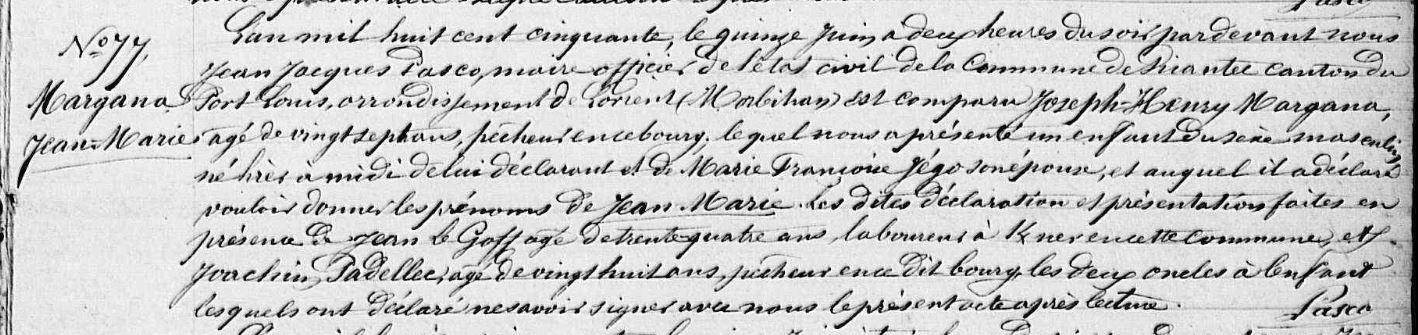 Pasco
N.o 77.
Margana,
Jean-Marie
L'an mil huit cent cinquante, le quinze Juin a deux heures du soir par devant nous
Jean Jacques Pasco, maire officier de l'état civil de la Commune de Riantec canton du
Port Louis, arrondissement de Lorient (Morbihan) Est comparu Joseph-Henry Margana,
agé de vingt sept ans, pécheur en ce bourg, lequel nous a présenté un enfant du sèxe masculin,
né hièr à midi de lui déclarant et de Marie Françoise Jégo son épouse, et auquel il a déclaré
vouloir donner les prénoms de Jean-Marie. Les dites déclaration et présentation faites en
présence de Jean le Goff agé de trente quatre ans, laboureur à en cette commune, et
Joachim Padellec, agé de vingt huit ans, pécheur en ce dit bourg, les deux oncles à l'enfant
lesquels ont déclaré ne savoir signer avec nous le présent acte après lecture.
Pasco